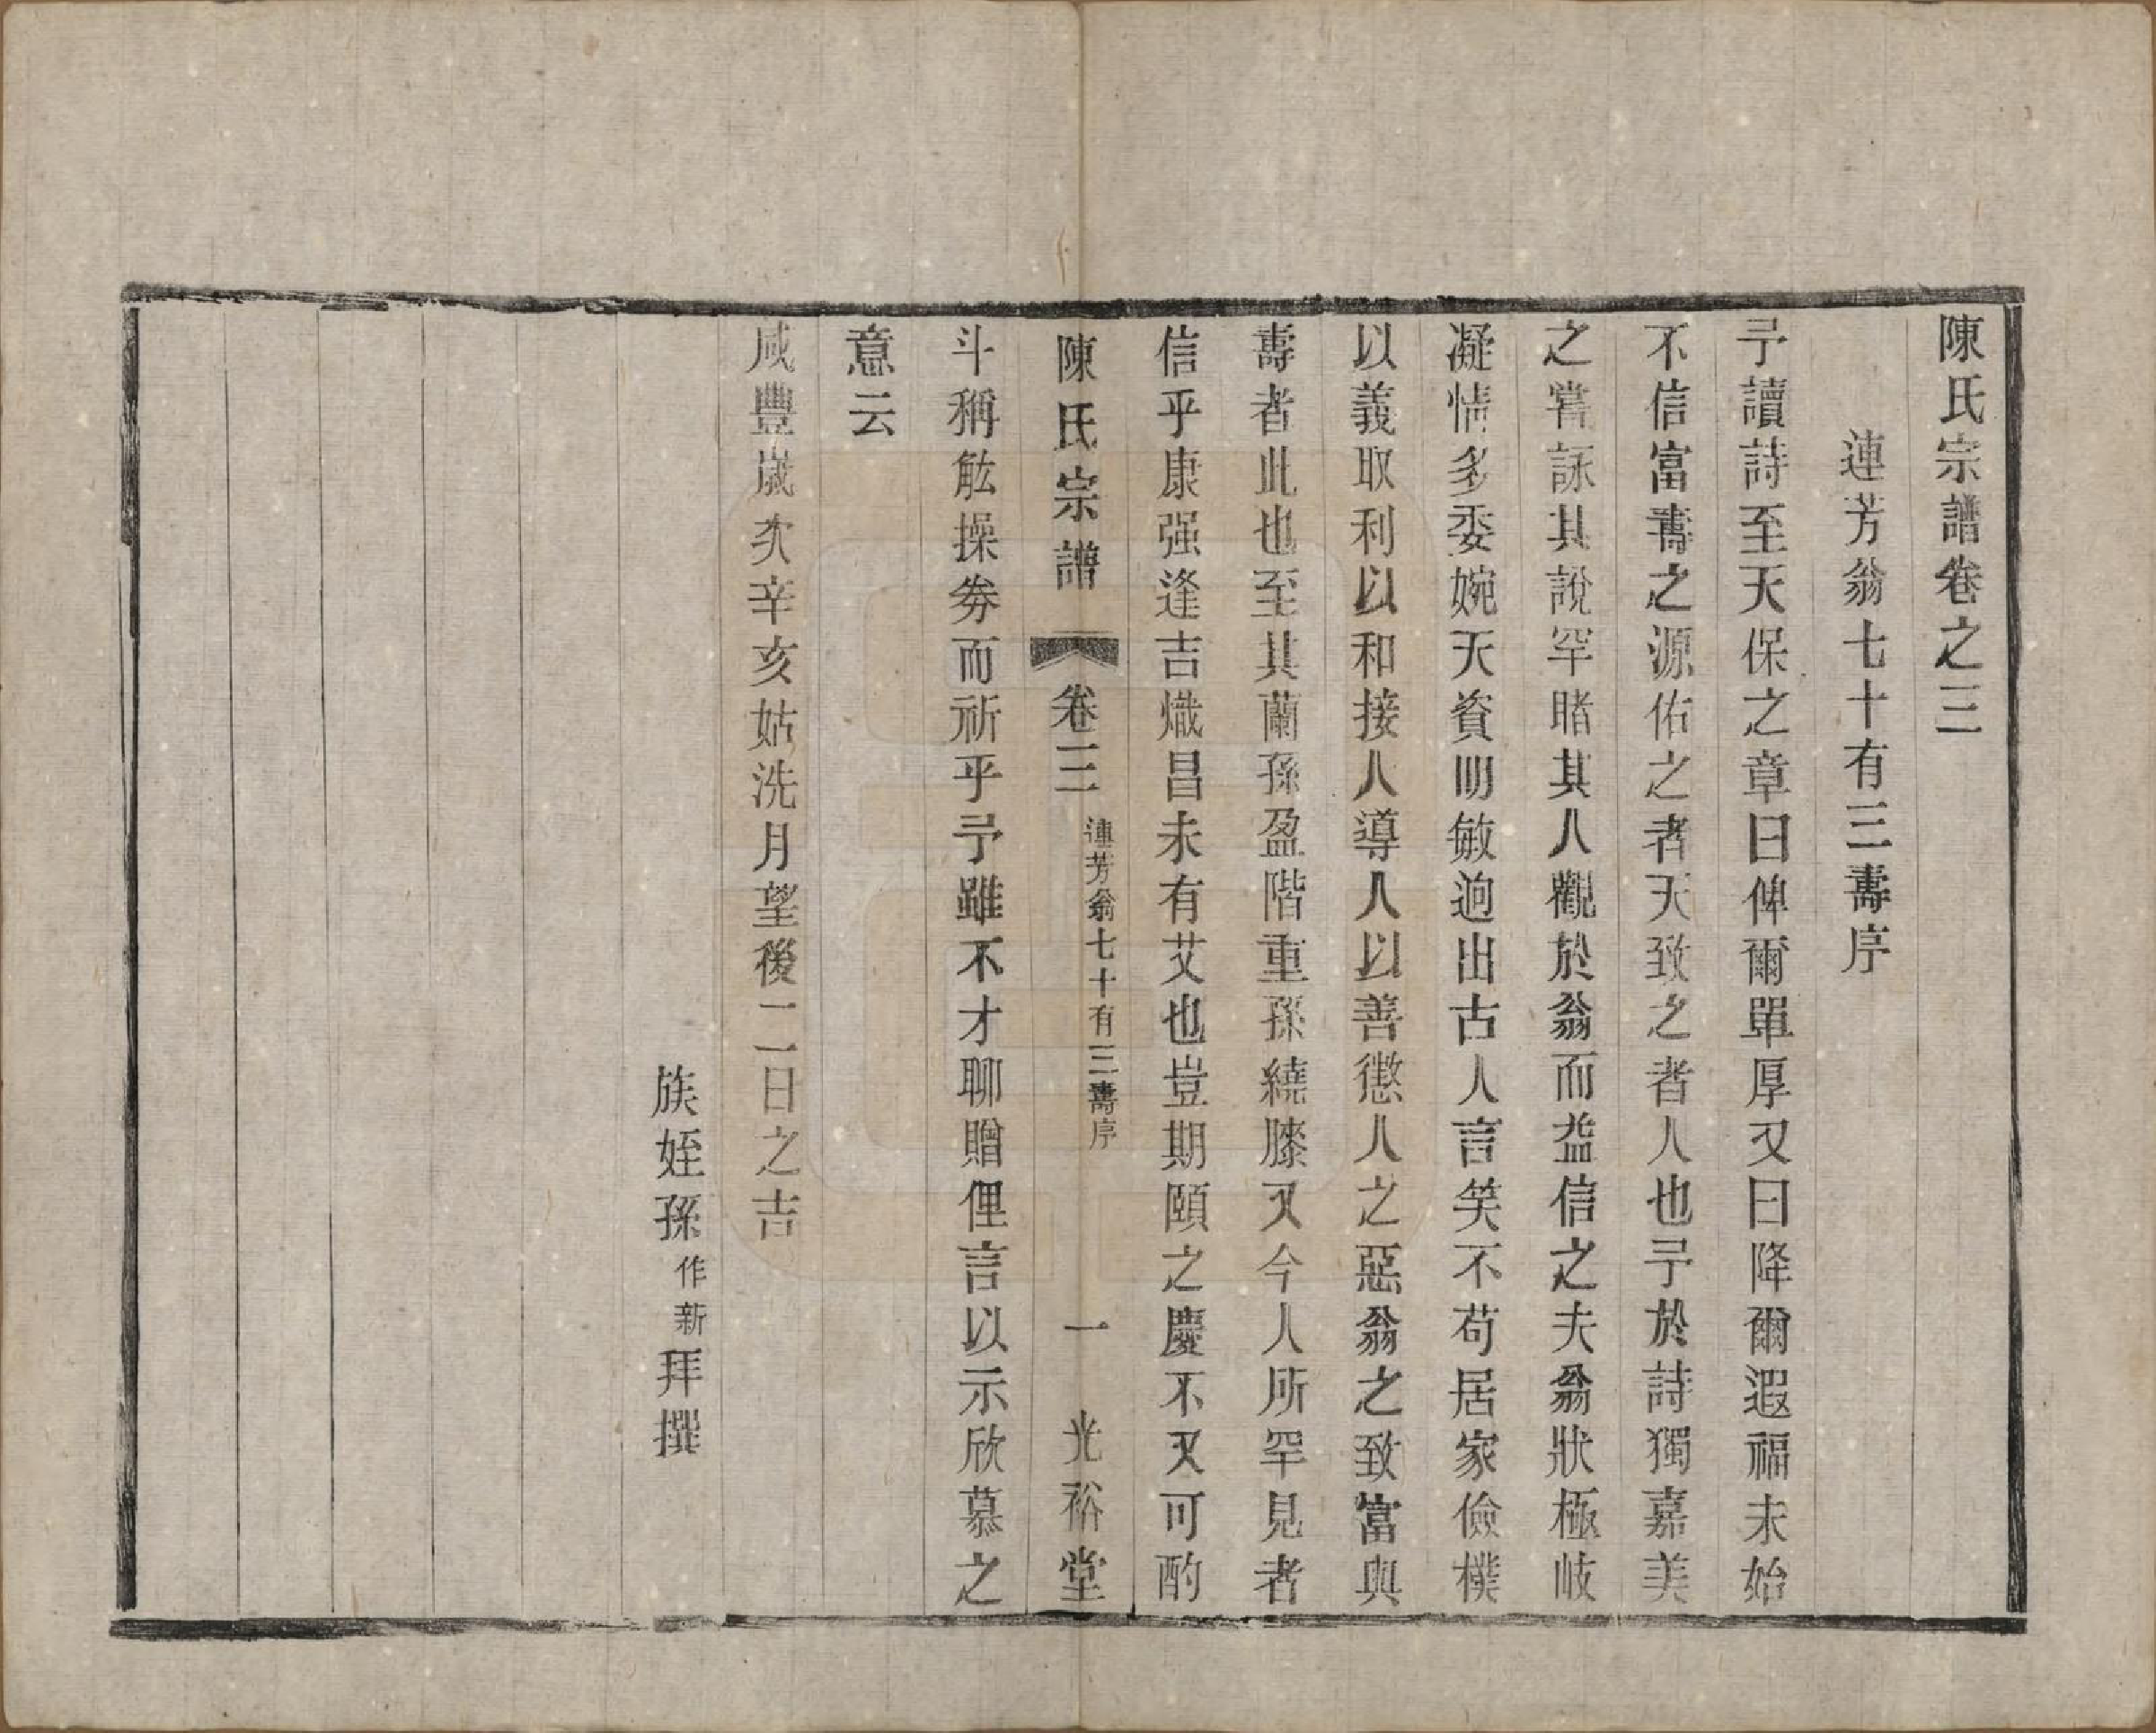 陳氏宗譜卷之三
連芳翁七十有三壽序
予讀詩至天保之章曰俾爾單厚又曰降爾遐福未始
不信富壽之源佑之者天致之者人也予於詩獨嘉美
之嘗詠其說罕睹其人觀於翁而益信之夫翁狀極岐
凝情多委婉天資明敏逈出古人言笑不苟居家儉樸
以義取利以和接人導人以善懲人之惡翁之致富與
壽者此也至其蘭孫盈階重孫繞膝又今人所罕見者
信乎康强逢吉熾昌未有艾也豈期頤之慶不又可酌
陳氏宗譜 卷三 連芳翁七十有三壽序 一 光裕堂
斗稱觥操劵而祈乎予雖不才聊贈俚言以示欣慕之
意云
咸豐歲次辛亥姑洗月望後二日之吉
族姪孫作新拜撰